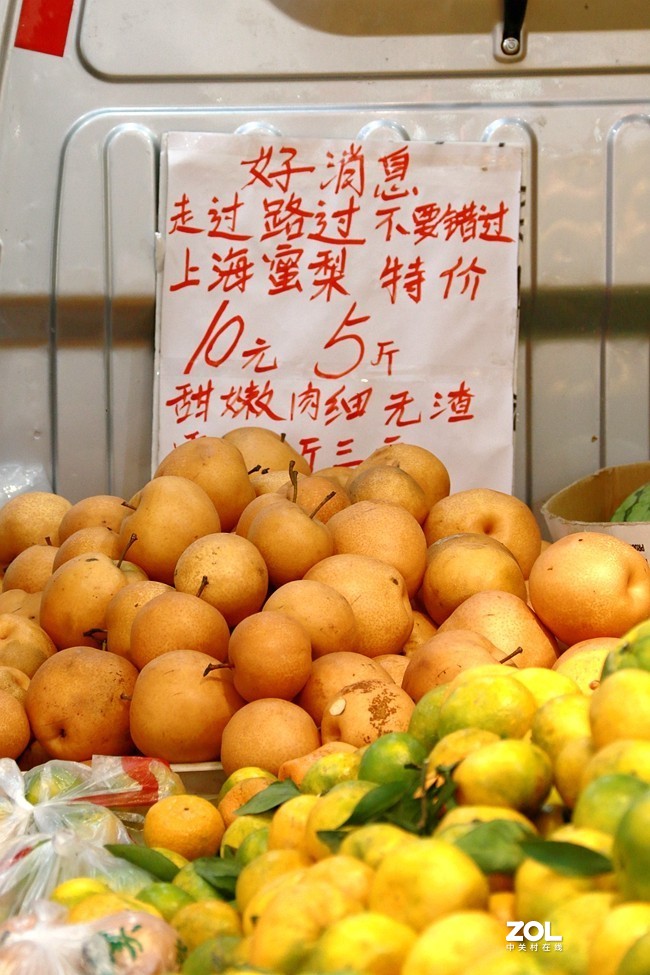 好消息
走过路过不要错过
上海蜜梨 特价
10元 5斤
甜嫩肉细无渣
斤三
ZOL
中关村在线